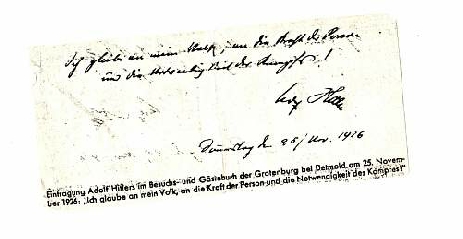 Ich glaube an mein Volk, an die Kraft der Person
und die Notwendigkeit des Kampfes!
Adolf Hitler
Donnerstag den 25/Nov. 1926
Eintragung Adolf Hitlers im Besuchs- und Gästebuch der Grotenburg bei Detmold am 25. Novem-
ber 1926: „Ich glaube an mein Volk, an die Kraft der Person und die Notwendigkeit des Kampfes!"